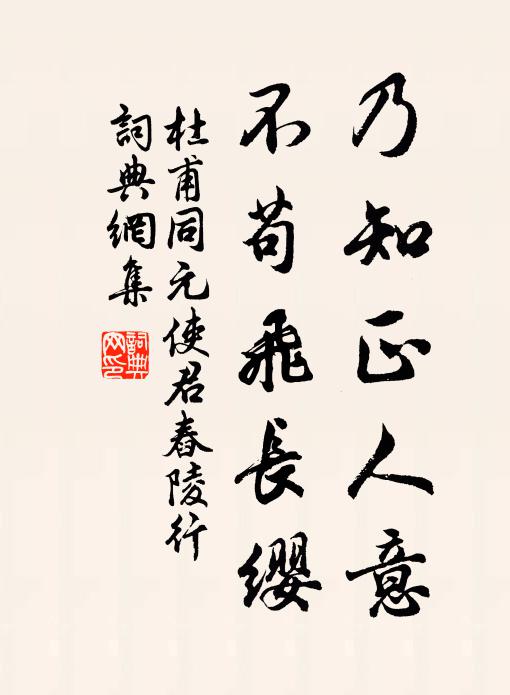 乃知正人意
不苟飛長纓
杜甫同元使君舂陵行
詞典網集
詞典網印